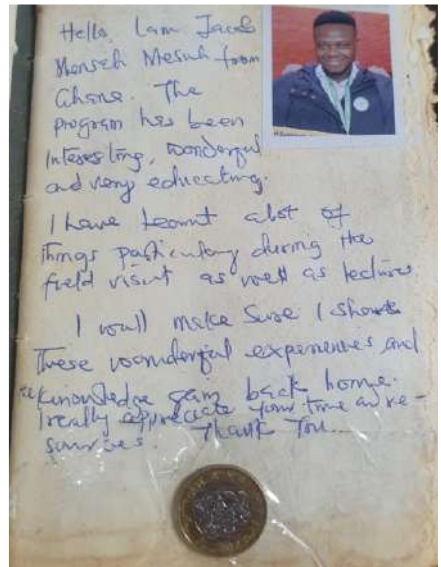 Hello, I am Jacob
Mensah Mesuh from
Ghana. The
program has been
Interesting, wonderful
and very educating.
I have learnt alot of
things particulary during the
field visit as well as lectures.
I will make sure I share
these wonderful experiences and
knowledge gain back home.
I really appreciate your time and re-
sources. Thank You...